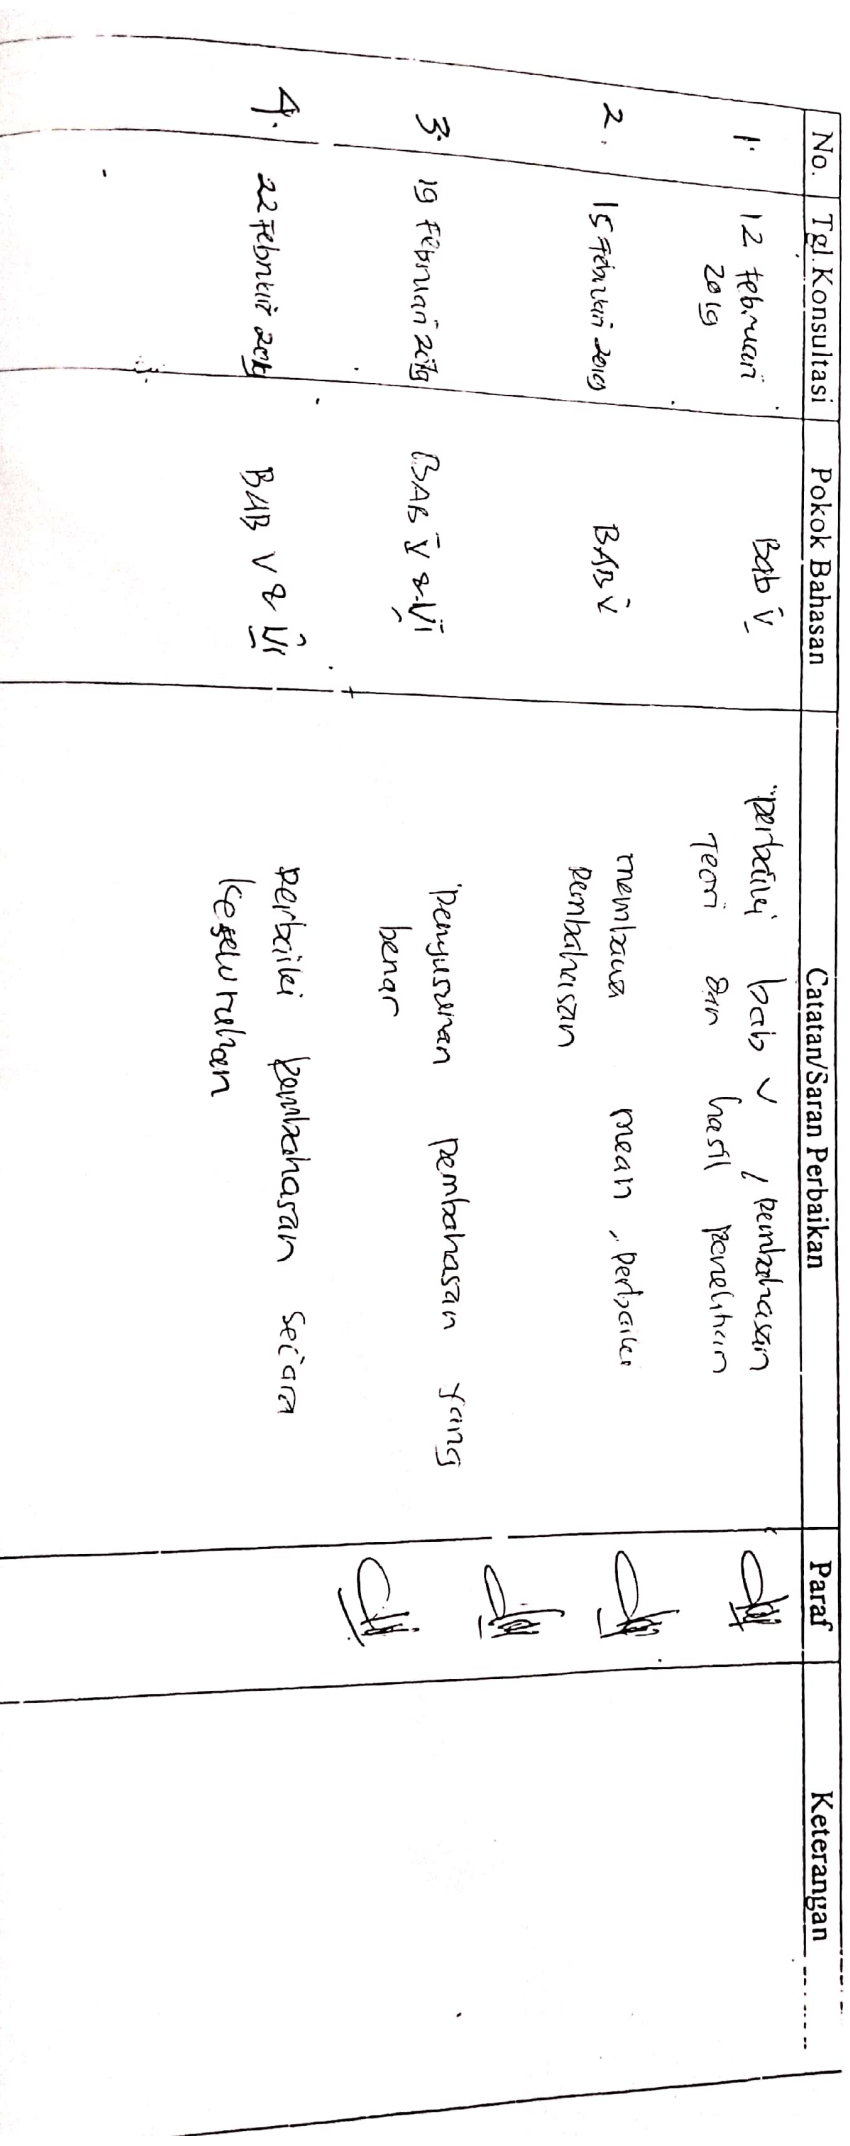 No. Tgl.Konsultasi Pokok Bahasan Catatan/Saran Perbaikan Paraf Keterangan
1. 12 februari 2019 Bab V perbaiki bab V, pembahasan
Teori dan hasil penelitian
2. 15 Februari 2019 BAB V membawa mean, perbaiki
pembahasan
3. 19 februari 2019 BAB V & VI penyusunan pembahasan yang
benar
4. 22 februari 2019 BAB V & VI perbaiki pembahasan secara
keseluruhan